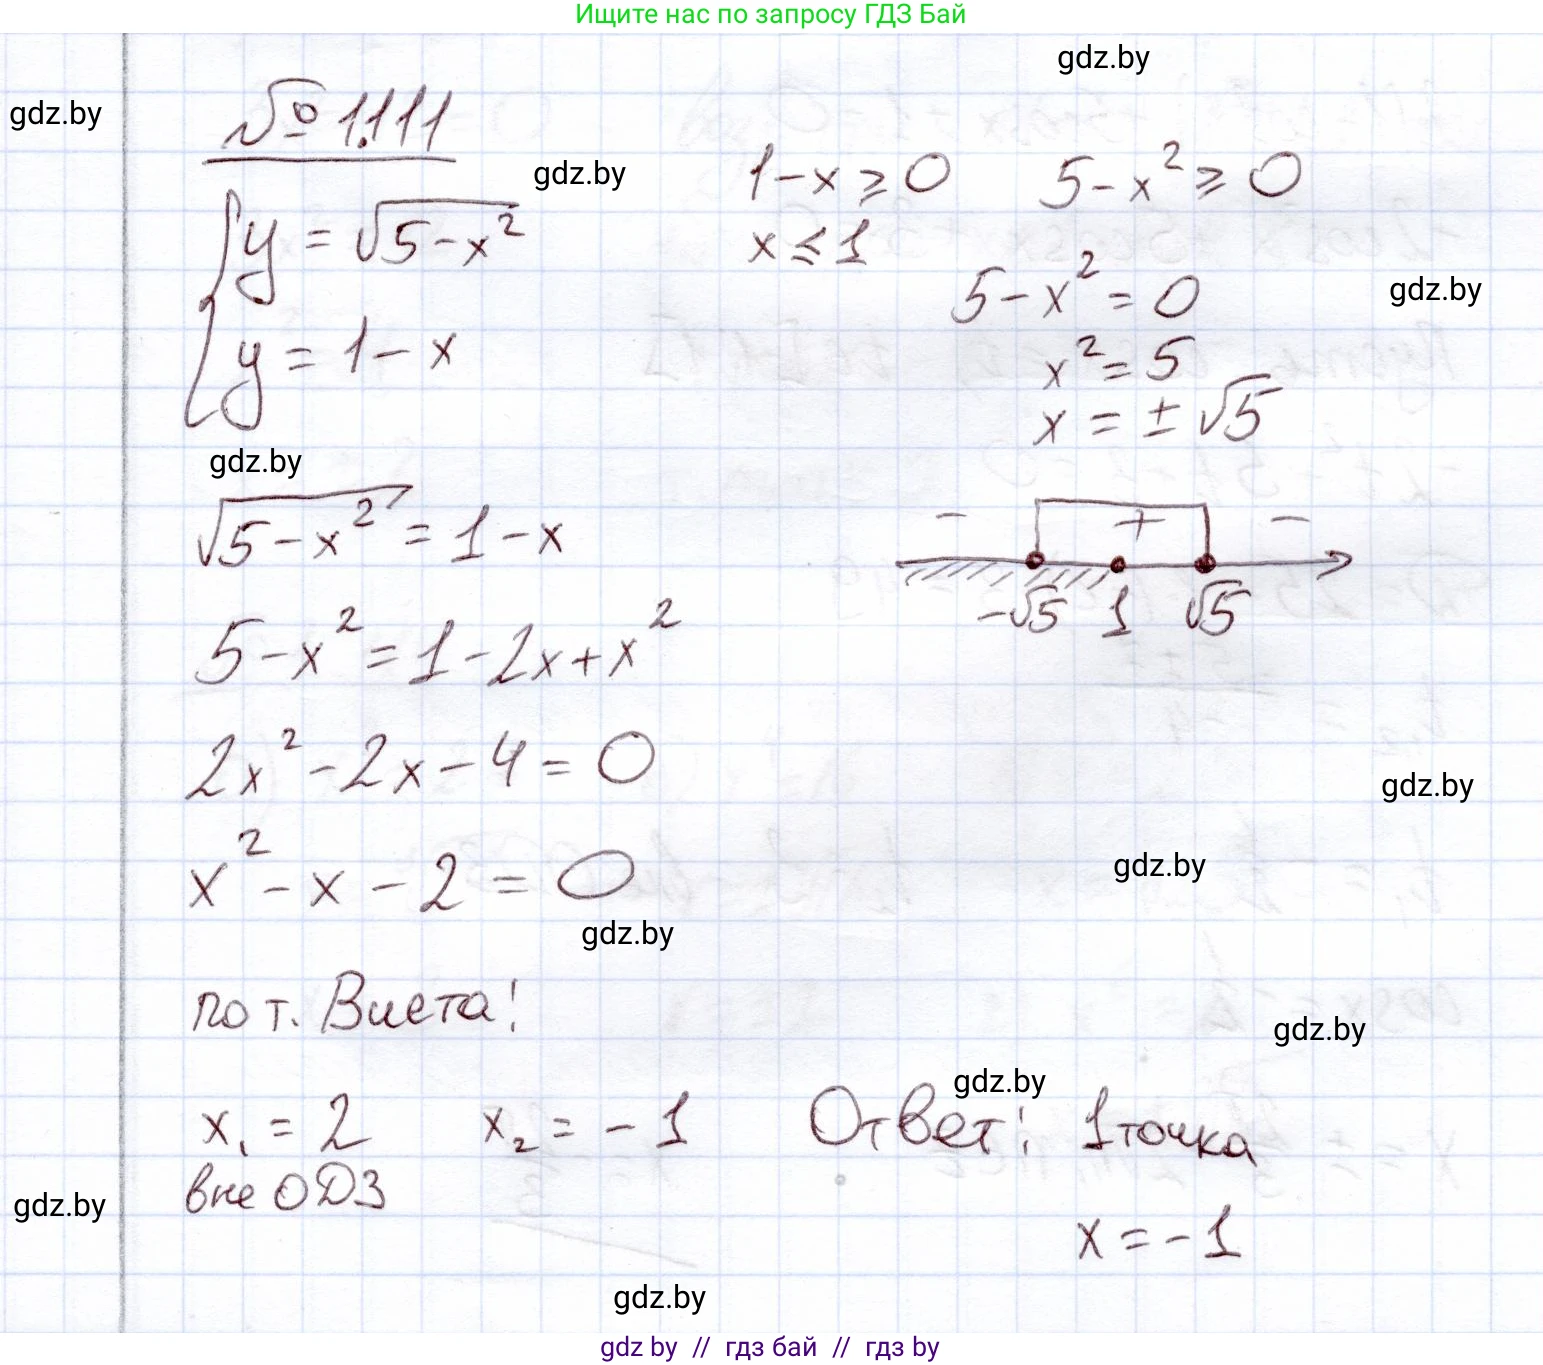 Ищите нас по запросу ГДЗ Бай
gdz.by
gdz.by
№ 1.111
gdz.by
{ y = √(5-x²)
y = 1-x
1-x ⩾ 0
x ⩽ 1
5-x² ⩾ 0
5-x² = 0
gdz.by
x² = 5
x = ±√5
gdz.by
√(5-x²) = 1-x
- + -
-√5 1 √5
5-x² = 1-2x+x²
2x²-2x-4=0
gdz.by
x²-x-2=0
gdz.by
gdz.by
по т. Виета:
gdz.by
gdz.by
x₁ = 2 x₂ = -1
вне ОДЗ
Ответ: 1 точка
x = -1
gdz.by
gdz.by
gdz by // гдз бай // гдз by